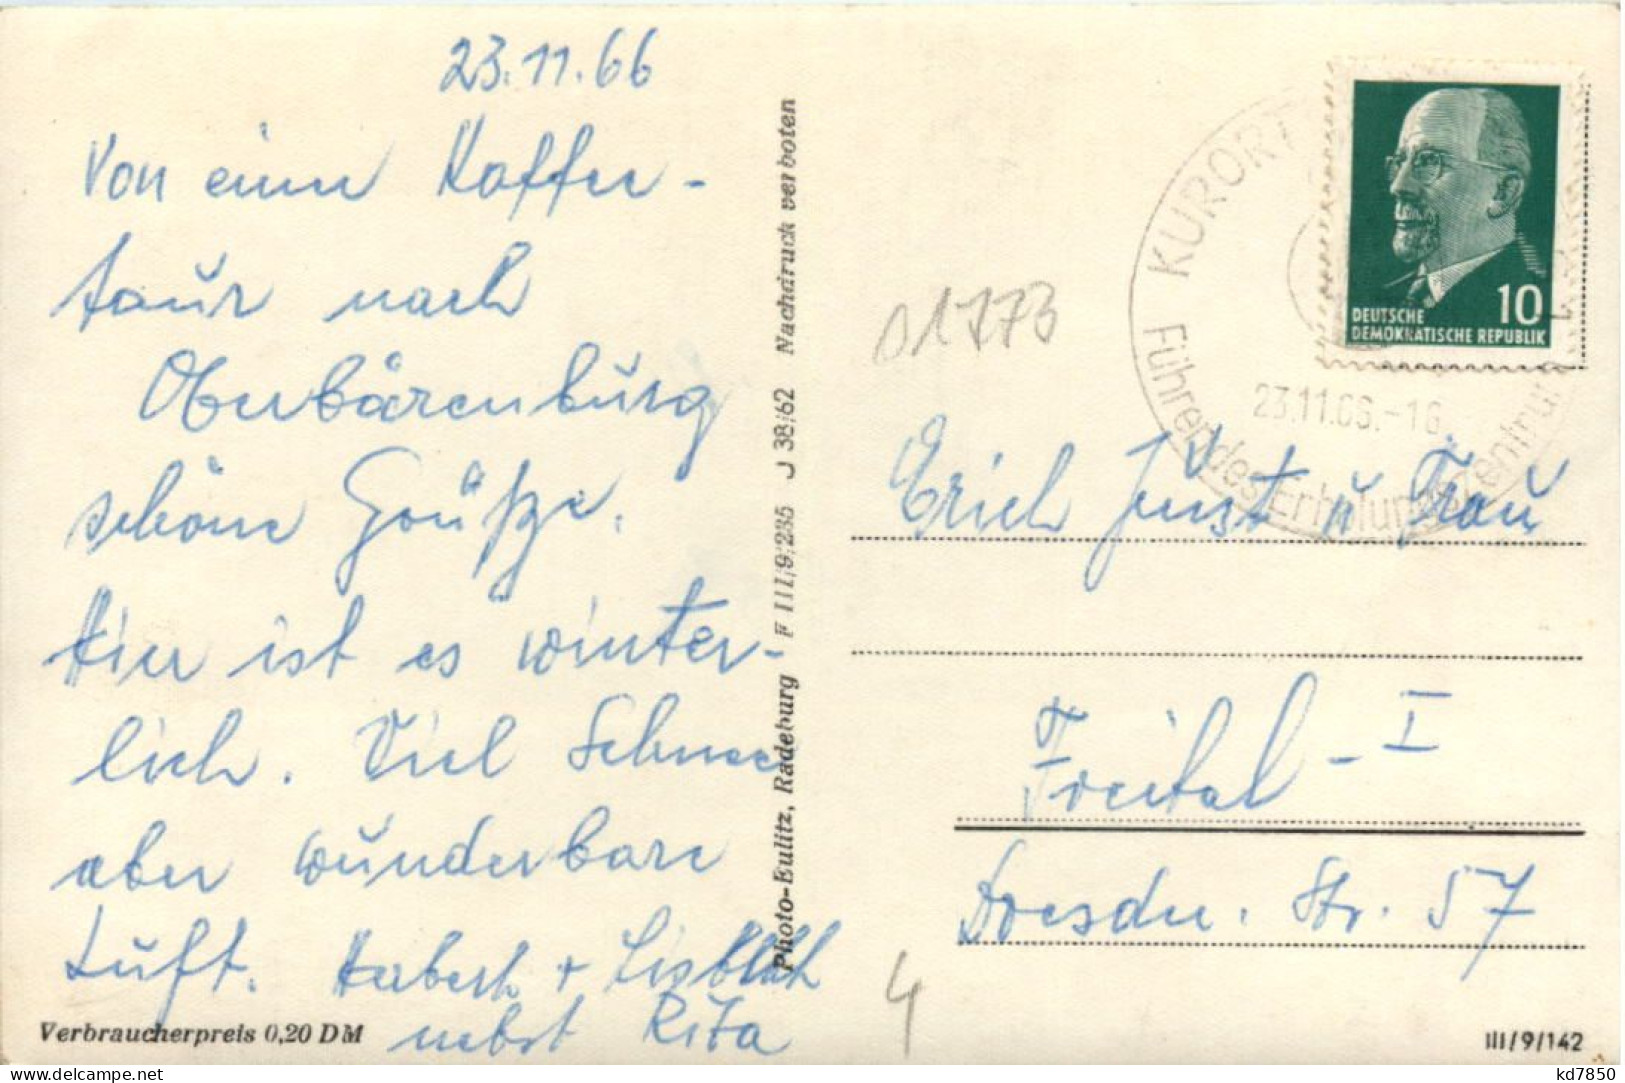 23.11.66
Von einer Kaffee-
tour nach
Oberbärenburg
schöne Grüße.
Hier ist es winter-
lich. Viel Schnee
aber wunderbare
Luft. Herbert + Lisbeth
nebst Rita
Verbraucherpreis 0,20 DM
Photo-Eulitz, Radeburg F III/9/235 J 38/62 Nachdruck verboten
01773
KURORT
23.11.66.-16
Führendes Erholungszentrum
10
DEUTSCHE
DEMOKRATISCHE REPUBLIK
Erich Just u Frau
Freital - I
Dresdn. Str. 57
4
III/9/142
kd7850